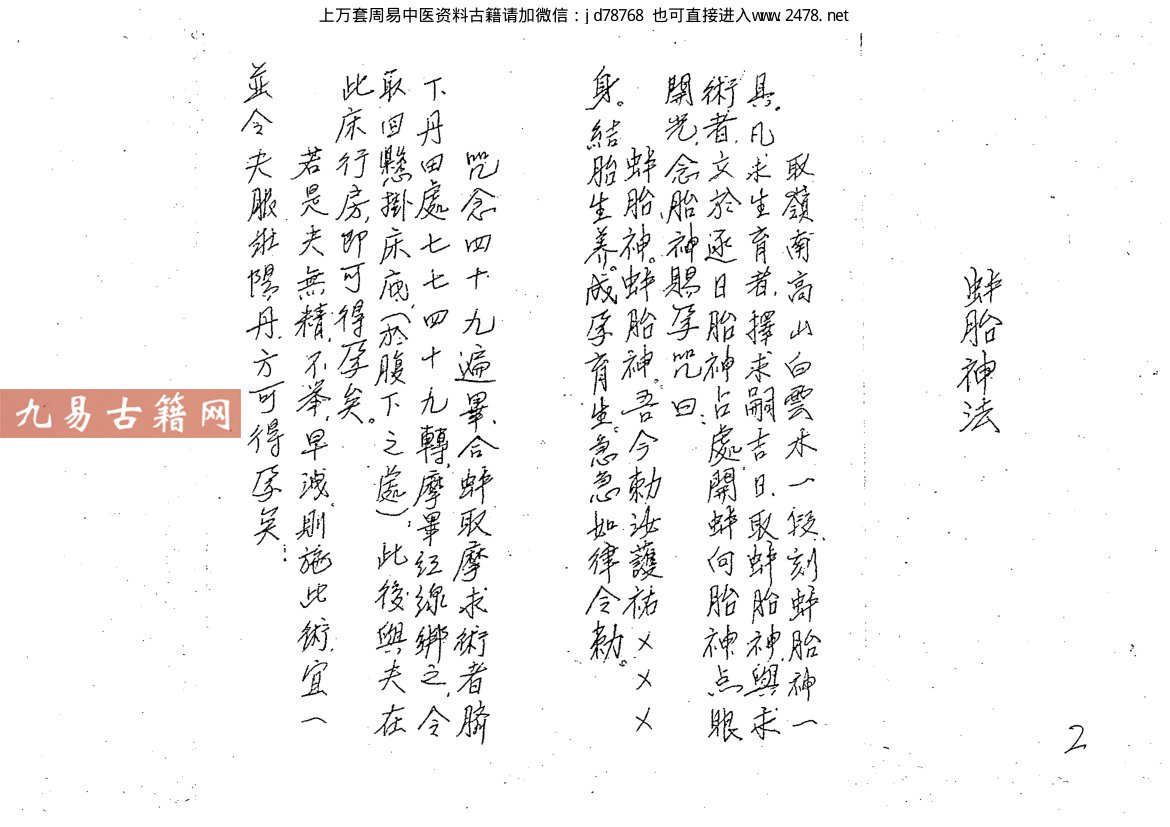 上万套周易中医资料古籍请加微信：jd78768 也可直接进入www.2478.net
蚌胎神法
取嶺南高山白雲木一段，刻蚌胎神一
具。凡求生育者，擇求嗣吉日，取蚌胎神與求
術者，交於逐日胎神占處，開蚌向胎神点眼
開光，念胎神賜孕咒曰：
蚌胎神。蚌胎神。吾今勅汝護祐×××
身。結胎生养。成孕育生。急急如律令勅。
咒念四十九遍畢，合蚌取摩求術者臍
下丹田處七七四十九轉，摩畢红線綁之，令
取回懸掛床底（於腹下之處），此後與夫在
此床行房，即可得孕矣。
若是夫無精，不举，早洩，則施此術，宜一
並令夫服壯陽丹，方可得孕矣。
2
九易古籍网